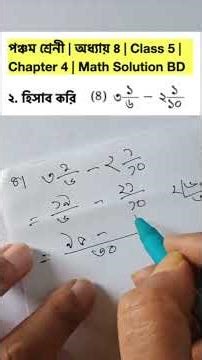 পঞ্চম শ্রেনী | অধ্যায় ৪ | Class 5 |
Chapter 4 | Math Solution BD
২. হিসাব করি (8) ৩ ১/৬ − ২ ১/১০
8) ৩ ১/৬ − ২ ১/১০
= ১৯/৬ − ২১/১০
= ৯৫ − /৩০